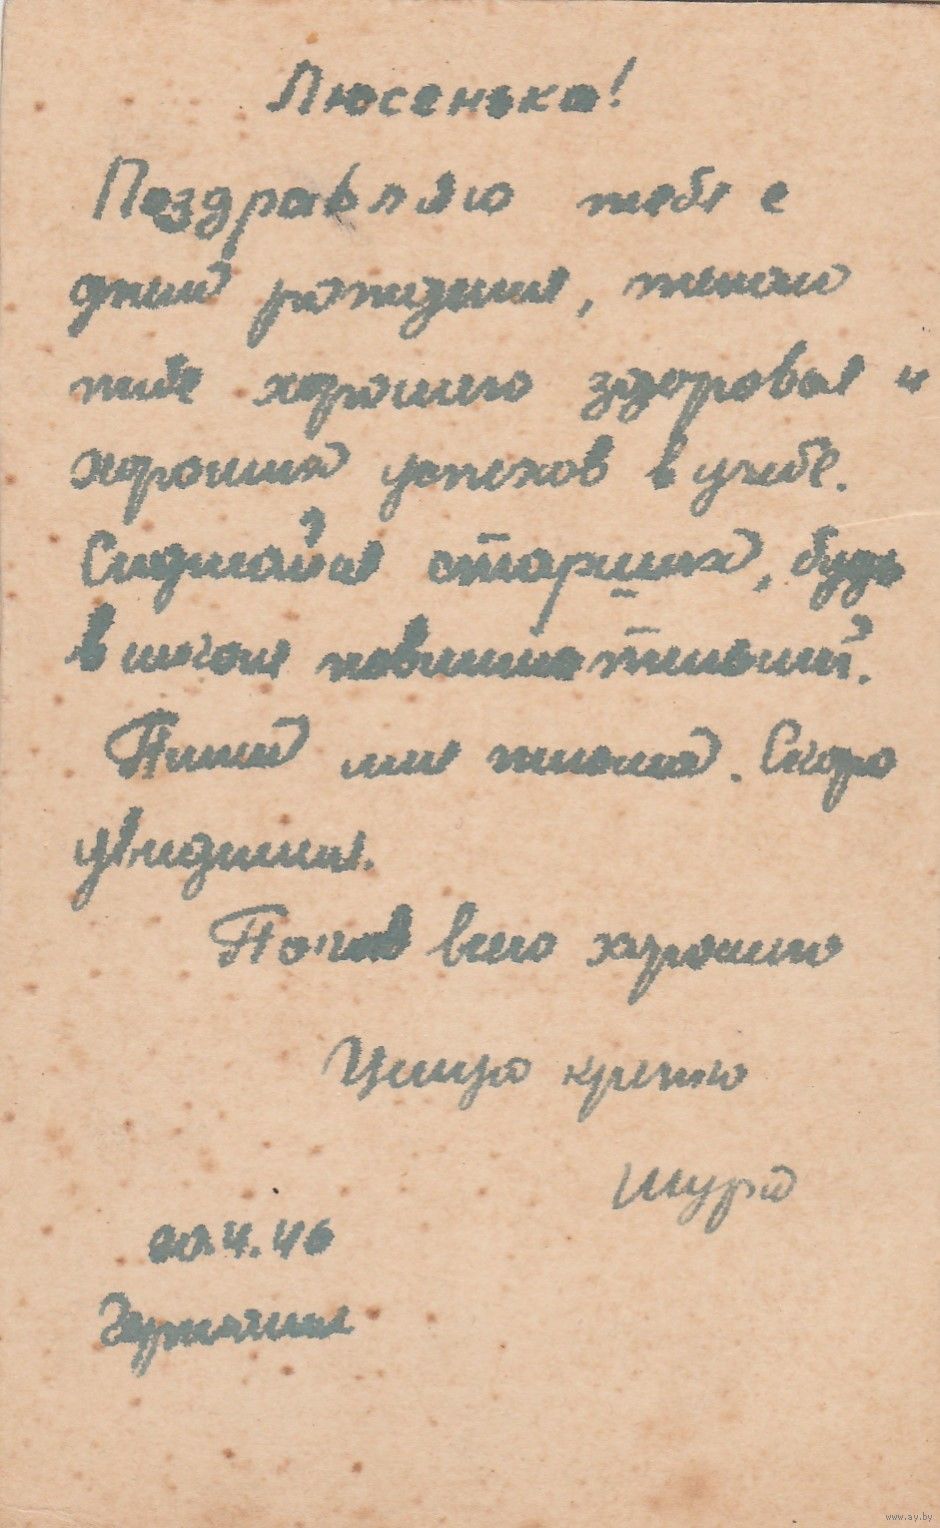 Люсенька!
Поздравляю тебя с
днем рождения, желаю
тебе хорошего здоровья и
хороших успехов в учебе.
Слушайся старших, будь
в школе внимательной.
Пиши мне письма. Скоро
увидимся.
Пока всего хорошего
Целую крепко
Шура
20.4.46
Германия
www.ay.by